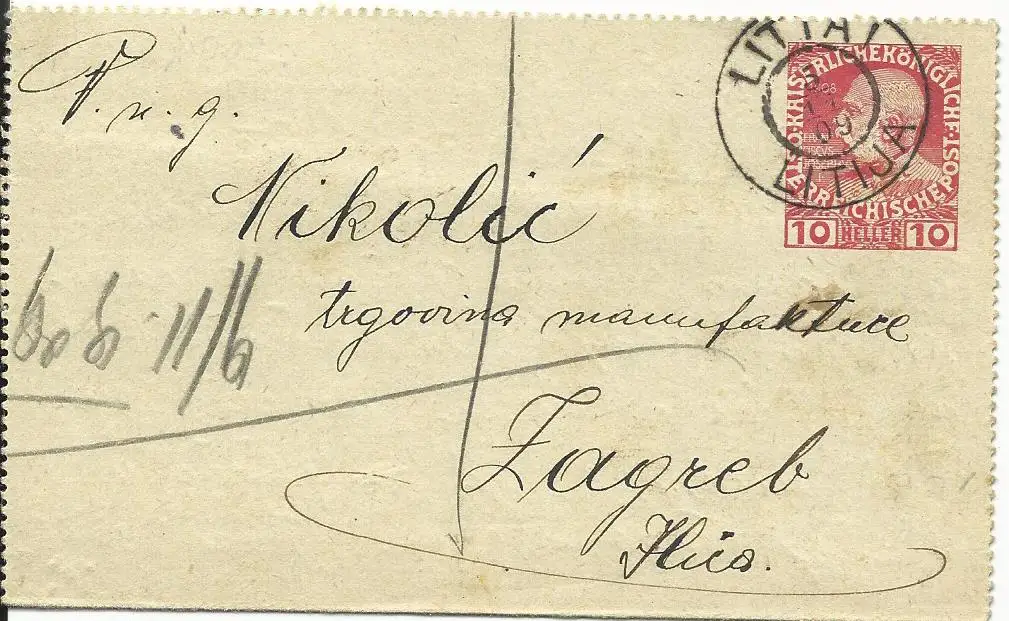 P. n. g.
Nikolić
trgovina manufakture
Zagreb
Ilica.
11/6
LITTAI
09
LITIJA
KAISERLICHEKÖNIGLICHE
ÖSTERREICHISCHEPOST
10 HELLER 10